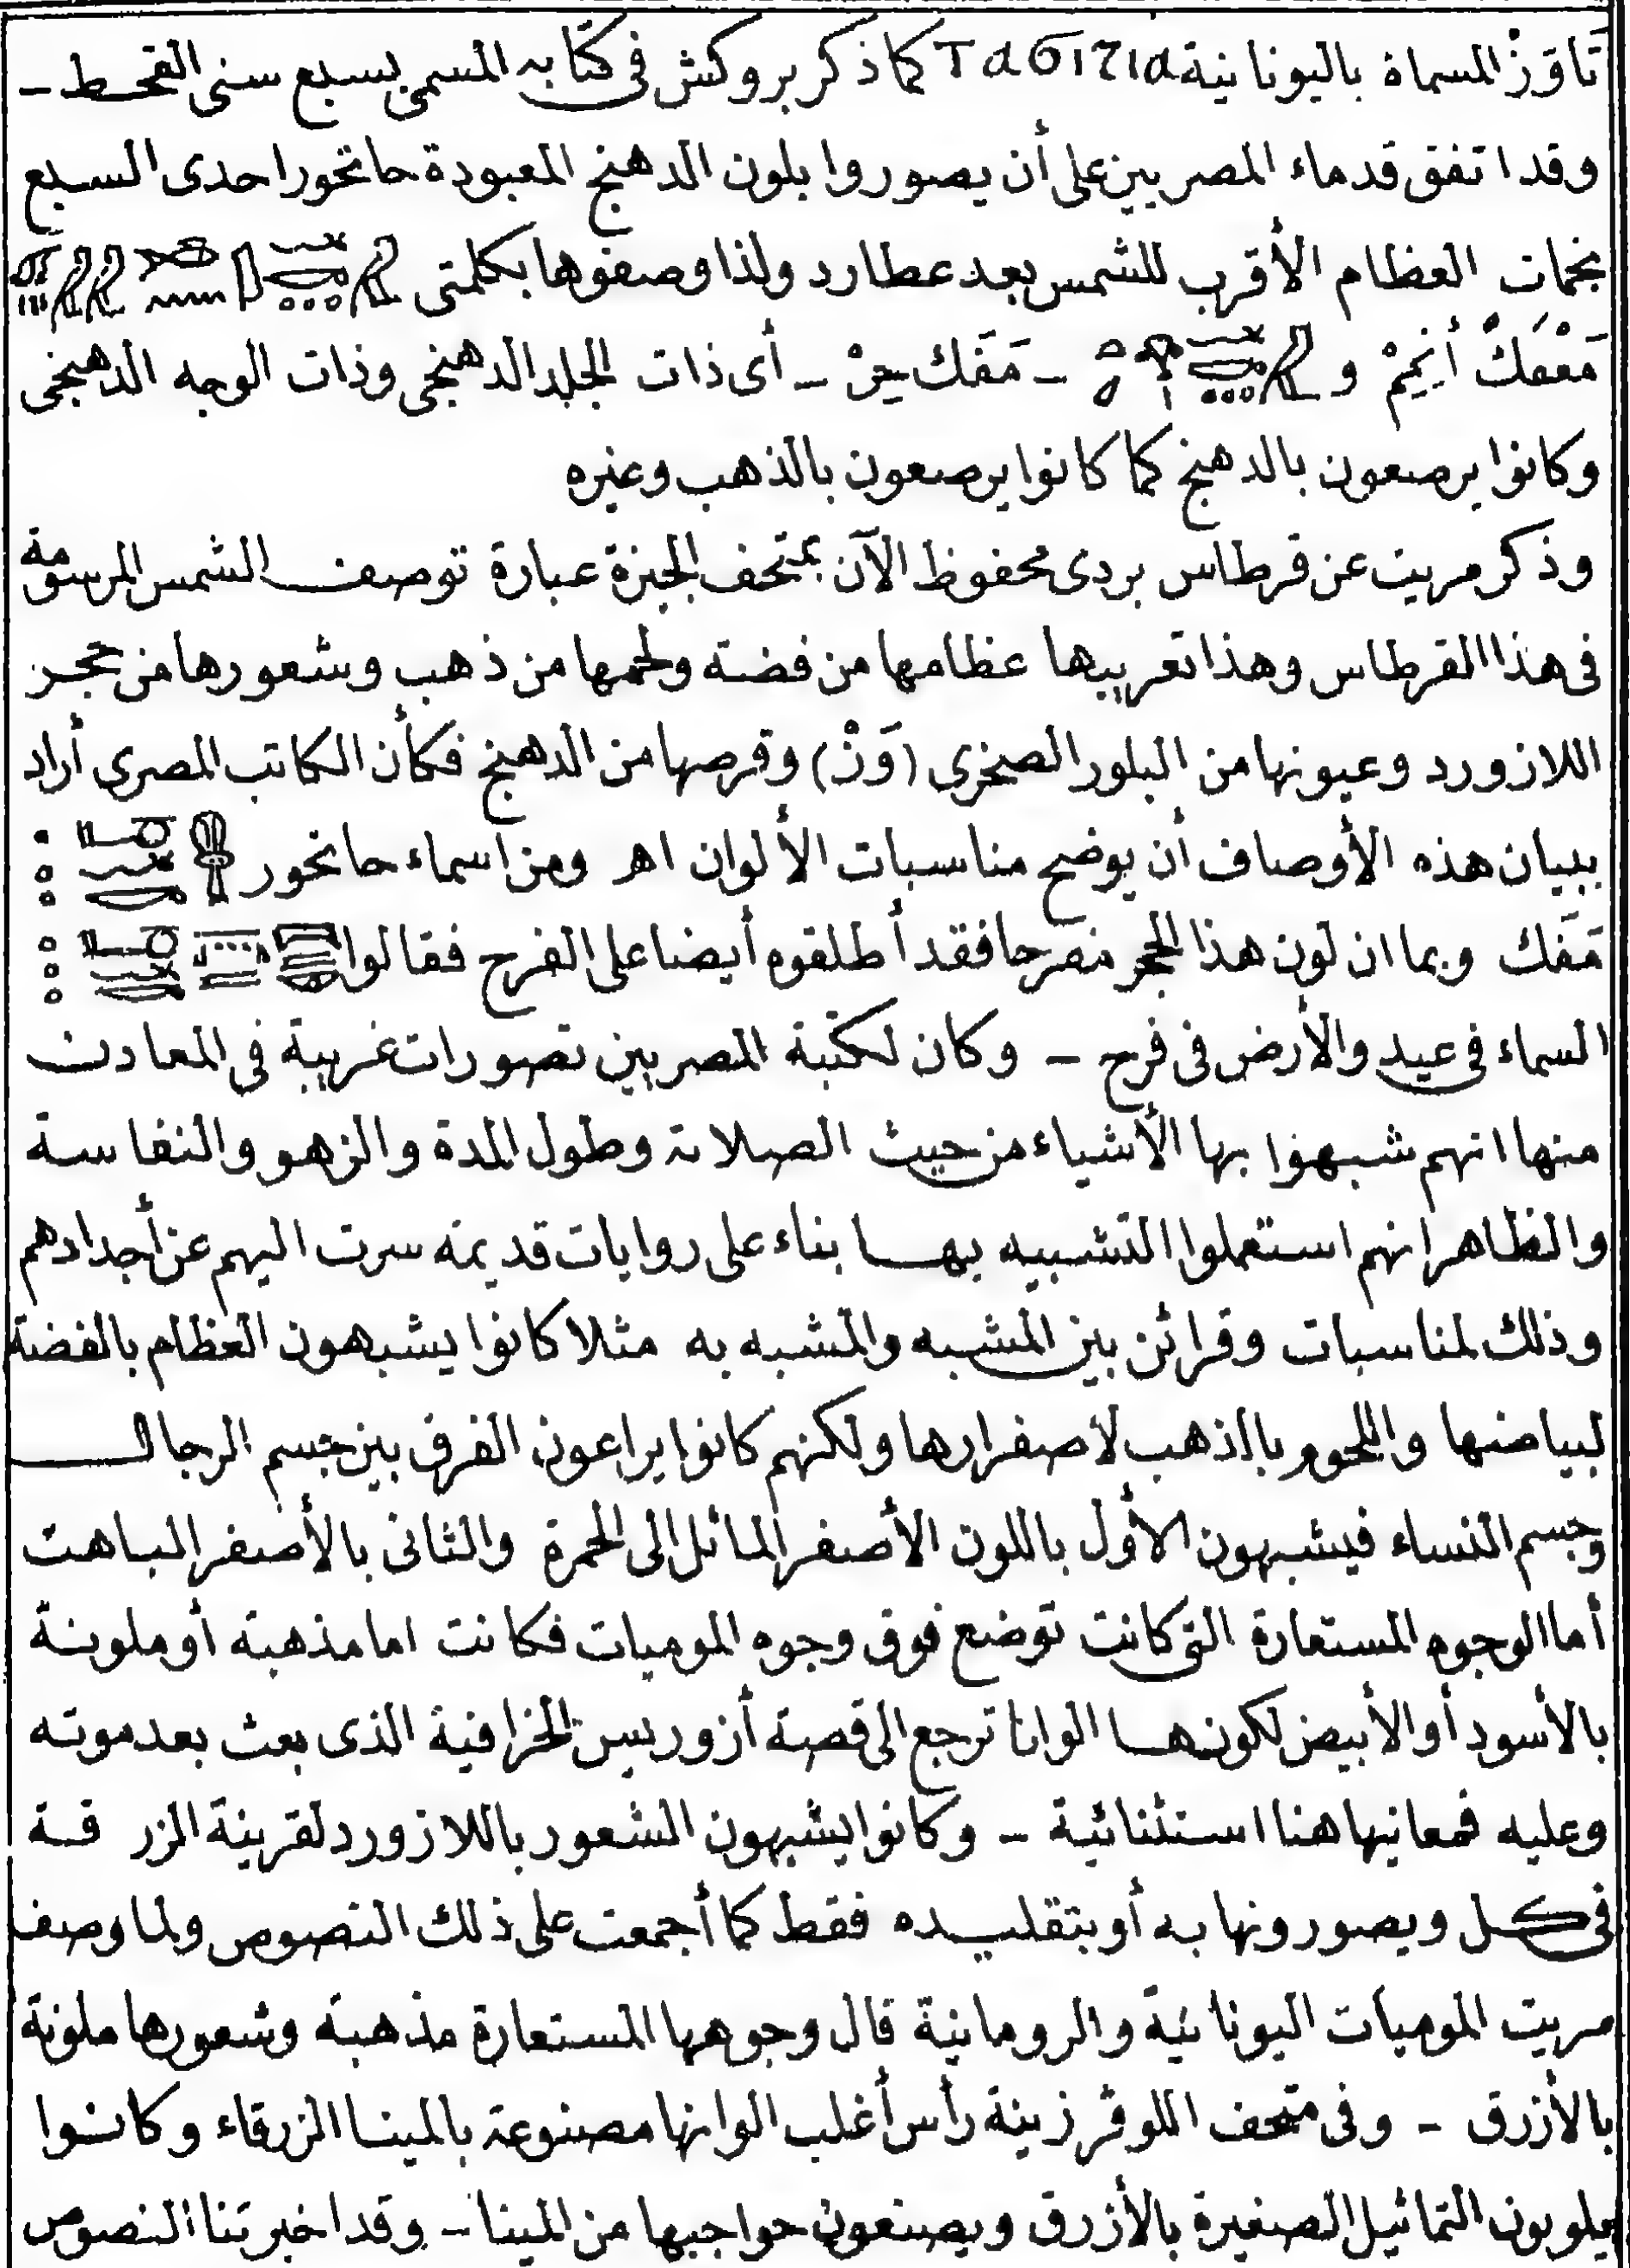 تاقوز المسماة باليونانية Ταβιζια كما ذكر بروكش فى كتابه المسمى بسبع سنى القحط ـ
وقد اتفق قدماء المصريين على أن يصوروا بلون الدهنج المعبودة حاتحور احدى السبع
نجمات العظام الأقرب للشمس بعد عطارد ولذا وصفوها بكلمتى
مَعْفَكْ أَنِمْ و ـ مَفَك حِرْ ـ أى ذات الجلد الدهنجى وذات الوجه الدهنجى
وكانوا يرصعون بالدهنج كما كانوا يرصعون بالذهب وغيره
وذكر مريت عن قرطاس بردى محفوظ الآن بمتحف الجيزة عبارة توصف الشمس المرسومة
فى هذا القرطاس وهذا تعريبها عظامها من فضة ولحمها من ذهب وشعورها من حجر
اللازورد وعيونها من البلور الصخرى (وَزْ) وقرصها من الدهنج فكأن الكاتب المصرى أراد
ببيان هذه الأوصاف أن يوضح مناسبات الألوان اهـ ومن اسماء حاتحور
مَفَك وبما ان لون هذا الحجر مفرحا فقد أطلقوه أيضا على الفرح فقالوا
السماء فى عيد والأرض فى فرح ـ وكان لكتبة المصريين تصورات غريبة فى المعادن
منها انهم شبهوا بها الأشياء من حيث الصلابة وطول المدة والزهو والنفاسة
والظاهر انهم استعملوا التشبيه بها بناء على روايات قديمة سرت اليهم عن أجدادهم
وذلك لمناسبات وقرائن بين المشبه والمشبه به مثلا كانوا يشبهون العظام بالفضة
لبياضها واللحوم بالذهب لاصفرارها ولكنهم كانوا يراعون الفرق بين جسم الرجال
وجسم النساء فيشبهون الأول باللون الأصفر المائل الى الحمرة والثانى بالأصفر الباهت
أما الوجوه المستعارة التى كانت توضع فوق وجوه الموميات فكانت اما مذهبة أو ملونة
بالأسود أو الأبيض لكونها الوانا ترجع الى قصة أزوريس الخرافية الذى بعث بعد موته
وعليه فمعانيها هنا استثنائية ـ وكانوا يشبهون الشعور باللازورد لقرينة الزرقة
فى كل ويصورونها به أو بتقليده فقط كما أجمعت على ذلك النصوص ولما وصف
مريت الموميات اليونانية والرومانية قال وجوهها المستعارة مذهبة وشعورها ملونة
بالأزرق ـ وفى متحف اللوفر زينة رأس أغلب الوانها مصنوعة بالمينا الزرقاء وكانوا
يلونون التماثيل الصغيرة بالأزرق ويصنعون حواجبها من المينا ـ وقد اخبرتنا النصوص